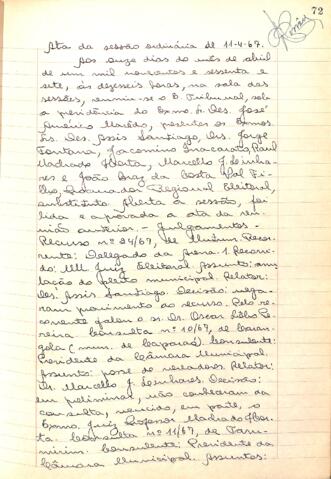 72
Ata da sessão ordinária de 11-4-67.
Aos onze dias do mês de abril
de um mil novecentos e sessenta e
sete, às dezesseis horas, na sala das
sessões, reuniu-se o E. Tribunal, sob
a presidência do Exmo. Sr. Des. José
Américo Macêdo, presentes os Exmos.
Srs. Des. Assis Santiago, Drs. Jorge
Fontana, Jacomino Inacarato, Raul
Machado Horta, Marcello J. Linha-
res e João Braz da Costa Val Fi-
lho, Procurador Regional Eleitoral,
substituto. Aberta a sessão, foi
lida e aprovada a ata da reu-
nião anterior. - Julgamentos -
Recurso nº 24/67, de Mutum. Recor-
rente: Delegado da Arena 1. Recorri-
do: MM. Juiz Eleitoral. Assunto: anu-
lação do pleito municipal. Relator:
Des. Assis Santiago. Decisão: nega-
ram provimento ao recurso. Pelo re-
corrente falou o sr. Dr. Oscar Pe-
reira. Consulta nº 10/67, de Caran-
gola (mun. de Caparaó). Consulente:
Presidente da Câmara Municipal.
Assunto: posse de vereadores. Relator:
Dr. Marcello J. Linhares. Decisão:
em preliminar, não conheceram da
consulta, vencido, em parte, o
Exmo. Juiz Professor Machado Hor-
ta. Consulta nº 11/67, de Taru-
mirim. Consulente: Presidente da
Câmara Municipal. Assunto: